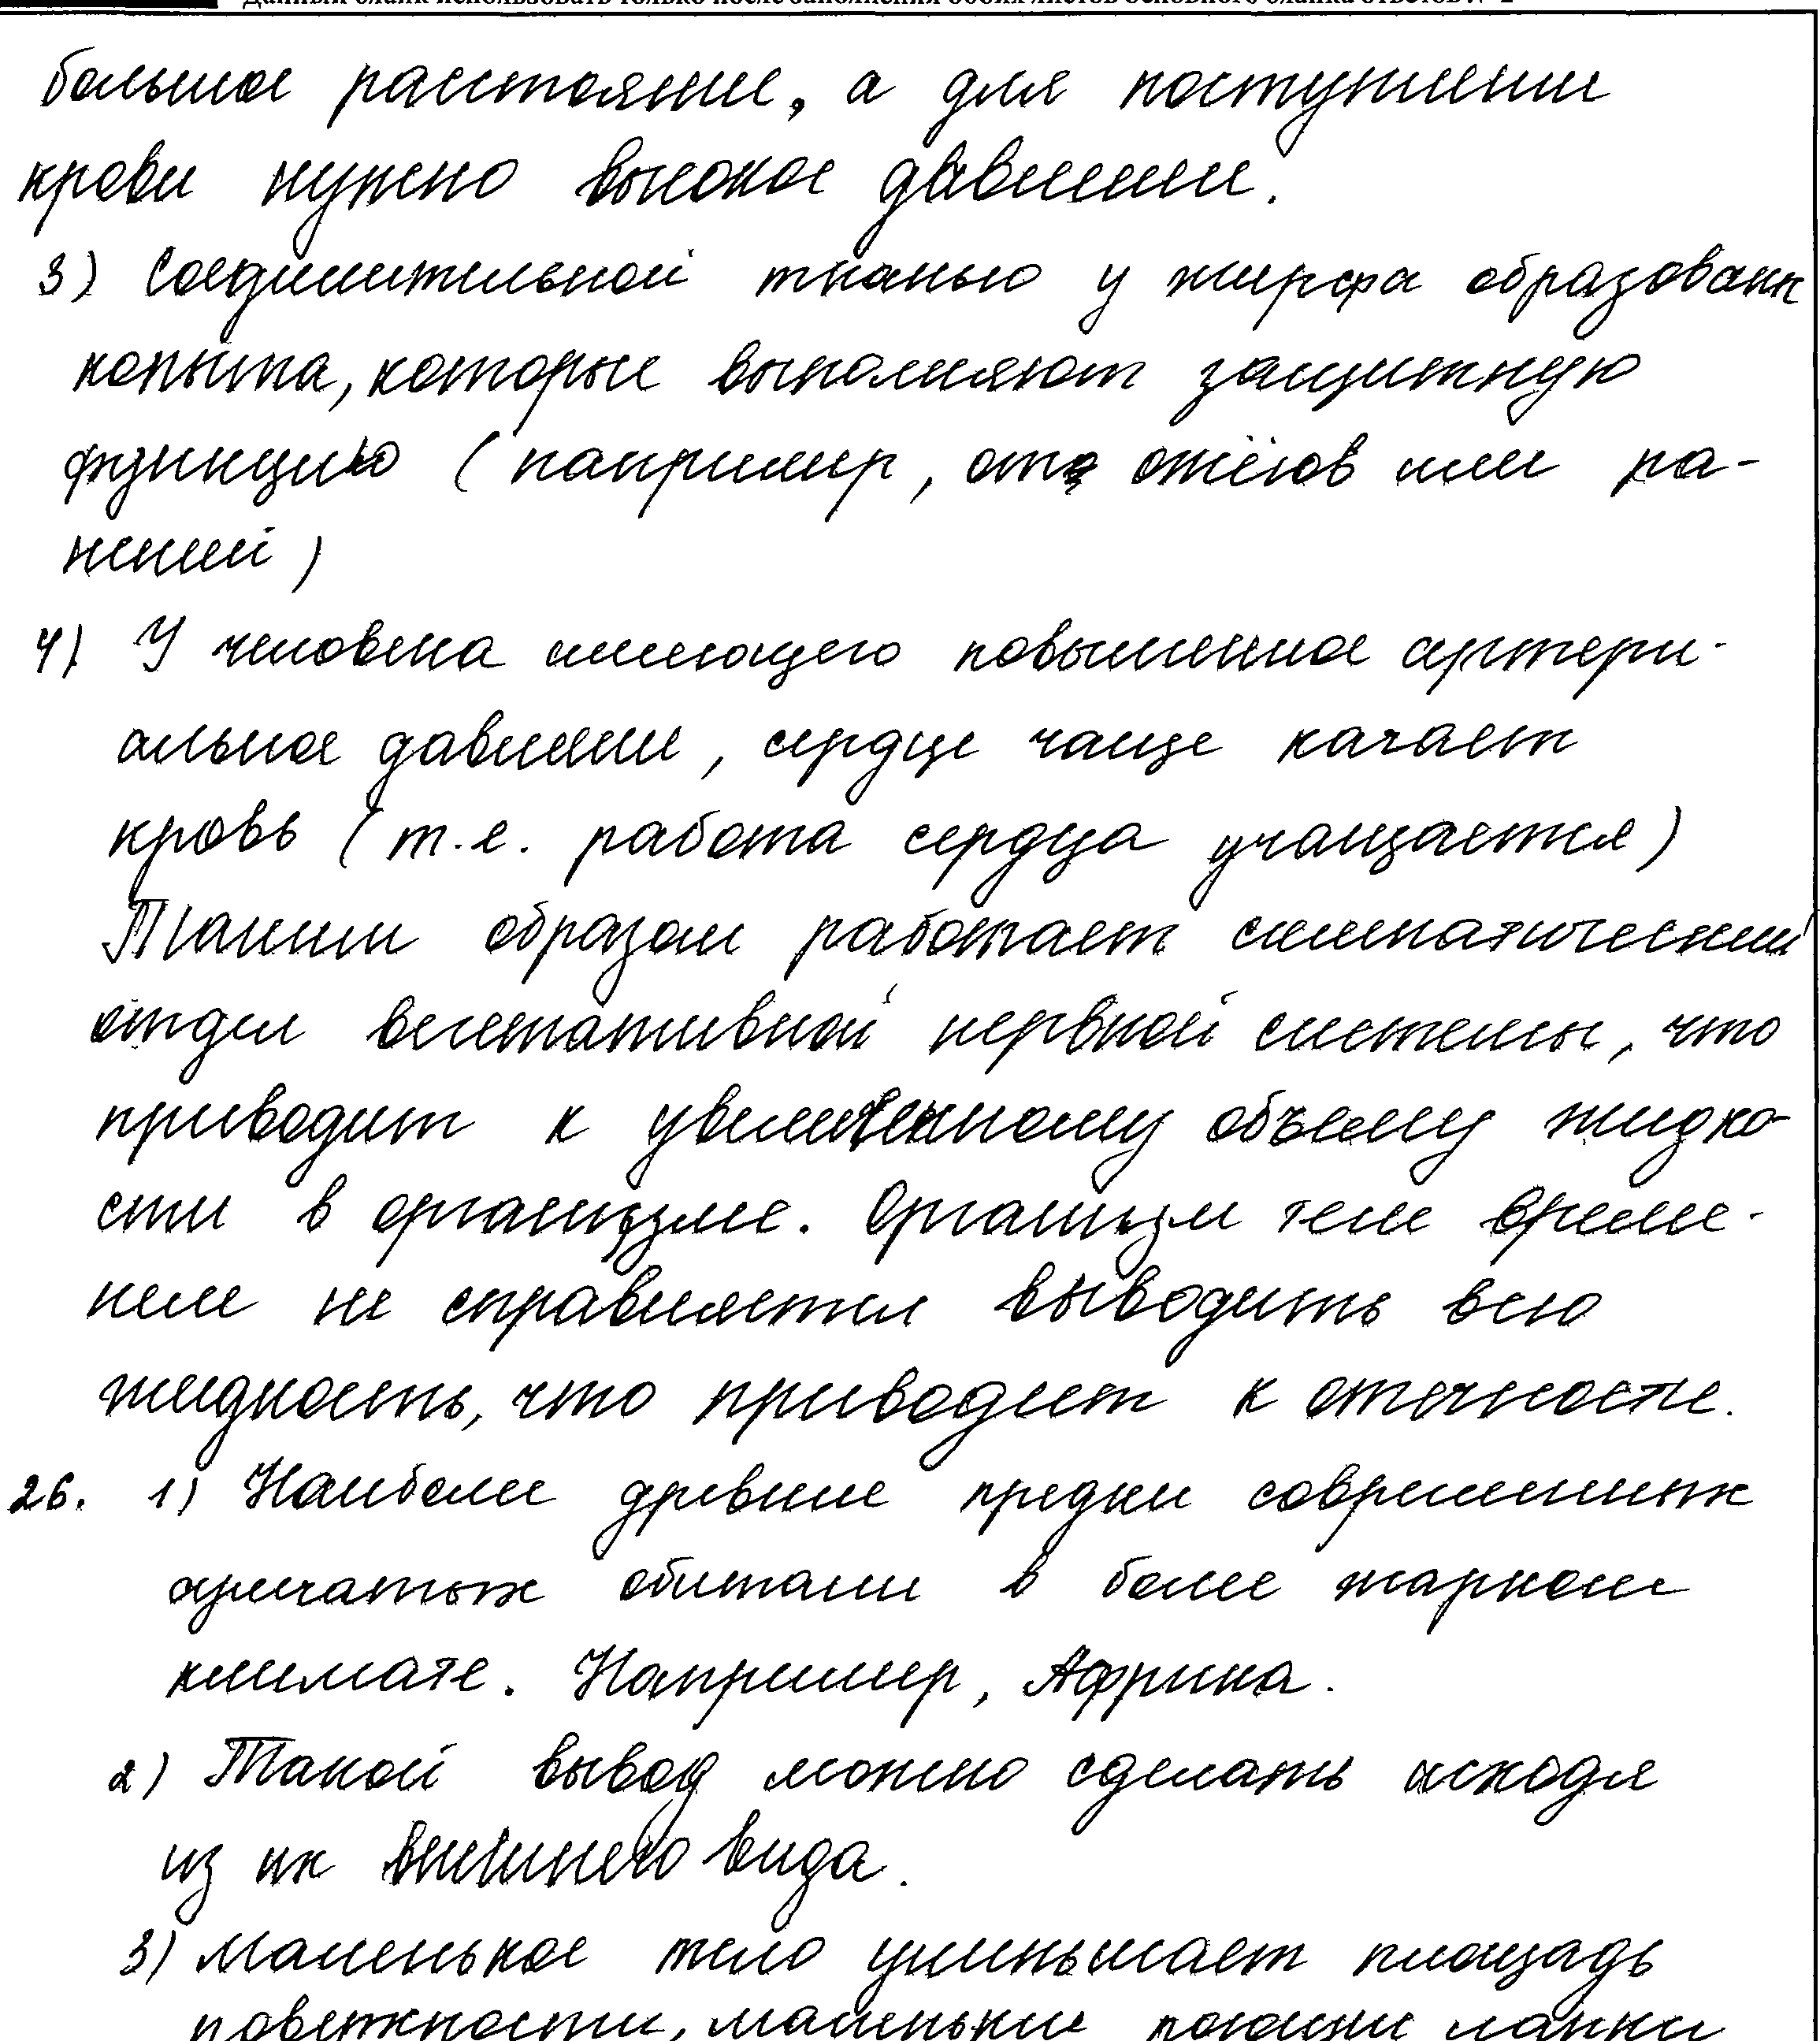 Данный бланк использовать только после заполнения обоих листов основного бланка ответов № 2
большое расстояние, а для поступлении
крови нужно высокое давление.
3) Соединительной тканью у жирфа образованн
копыта, которые выполняют защитную
функцию (например, от ожёгов или ра-
нений)
4) У человека имеющего повышенное артери-
альное давление, сердце чаще качает
кровь (т.е. работа сердца учащается)
Таким образом работает симпатический
отдел вегетативной нервной системы, что
приводит к увеличенному объёму жидко-
сти в организме. Организм тем време-
нем не справляется выводить всю
жидкость, что приводит к отечности.
26. 1) Наиболее древние предки современных
обитали в более жарком
климате. Например, Африка.
2) Такой вывод можно сделать исходя
из их внешнего вида.
3) Маленькое тело уменьшает площадь
поверхности, маленькие лапки